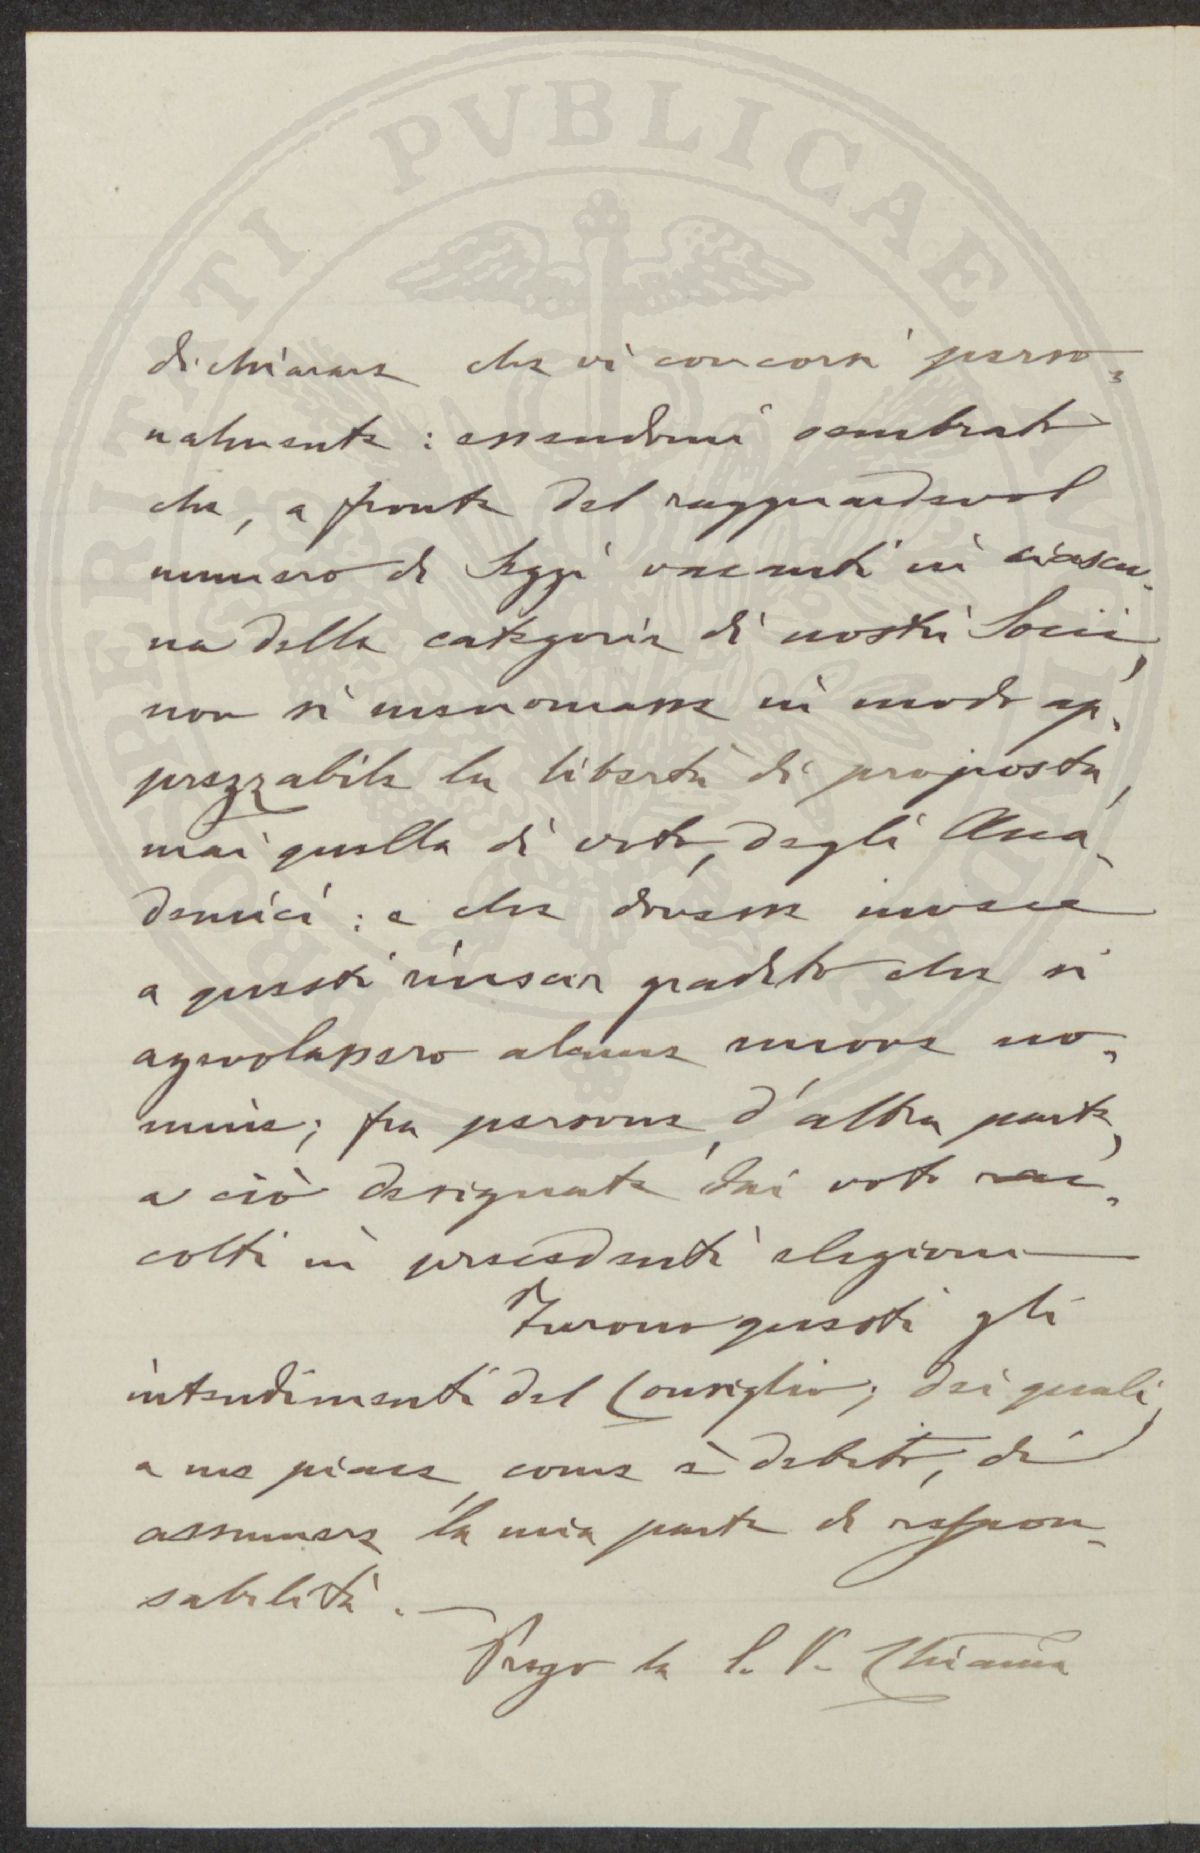 PROSPERITATI PVBLICAE AVGENDAE
dichiarare che vi concorsi perso-
nalmente: essendomi sembrato
che, a fronte del ragguardevol
numero di seggi vacanti in ciascu-
na delle categorie di nostri Socii,
non si menomasse in modo ap-
prezzabile la libertà di proposta,
mai quella di voto, degli Acca-
demici: e che dovesse invece
a questi riuscir gradito che si
agevolassero alcune nuove no-
mine; fra persone, d'altra parte,
a ciò designate dai voti rac-
colti in precedenti elezioni
Furono questi gli
intendimenti del Consiglio; dei quali,
a me piace, come è debito, di
assumere la mia parte di respon-
sabilità. —
Prego la S. V. Chiarma